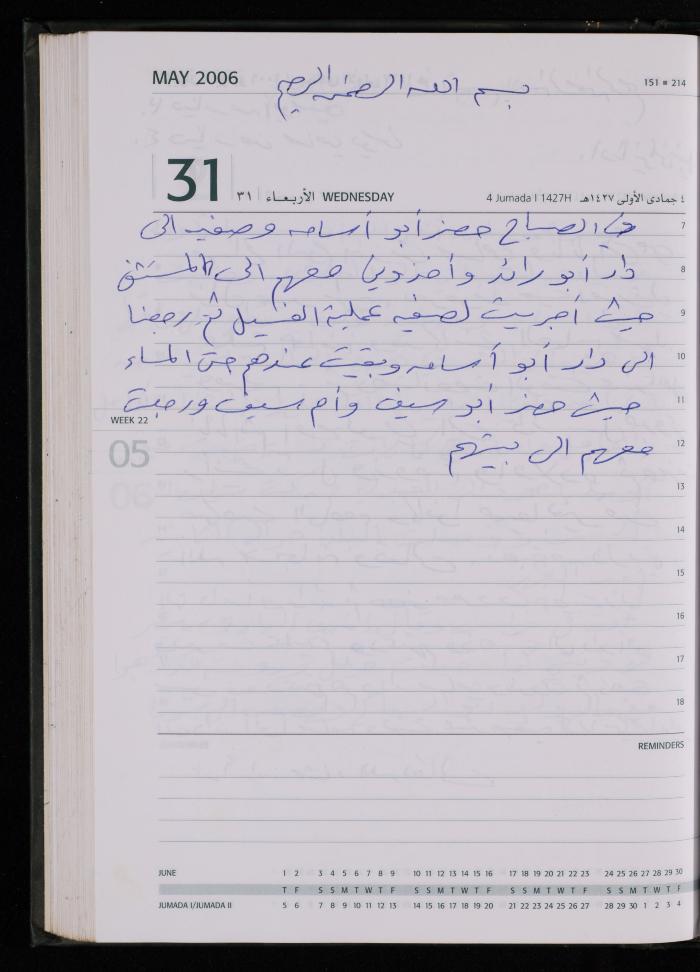 MAY 2006
بسم الله الرحمن الرحيم
151 ▪ 214
31
٣١ الأربعاء WEDNESDAY
4 Jumada I 1427H ٤ جمادى الأولى ١٤٢٧هـ
7
في الصباح حضر أبو أسامه وصفيه الى
8
دار أبو رائد وأخذوني معهم الى المستشفى
9
حيث أجريت لصفيه عملية الغسيل ثم رجعنا
10
الى دار أبو أسامه وبقيت عندهم حتى المساء
11
حيث حضر أبو سيف وأم سيف ورجعت
WEEK 22
12
معهم الى بيتهم
05
13
14
15
16
17
18
REMINDERS
JUNE 1 2 3 4 5 6 7 8 9 10 11 12 13 14 15 16 17 18 19 20 21 22 23 24 25 26 27 28 29 30
T F S S M T W T F S S M T W T F S S M T W T F S S M T W T F
JUMADA I/JUMADA II 5 6 7 8 9 10 11 12 13 14 15 16 17 18 19 20 21 22 23 24 25 26 27 28 29 30 1 2 3 4